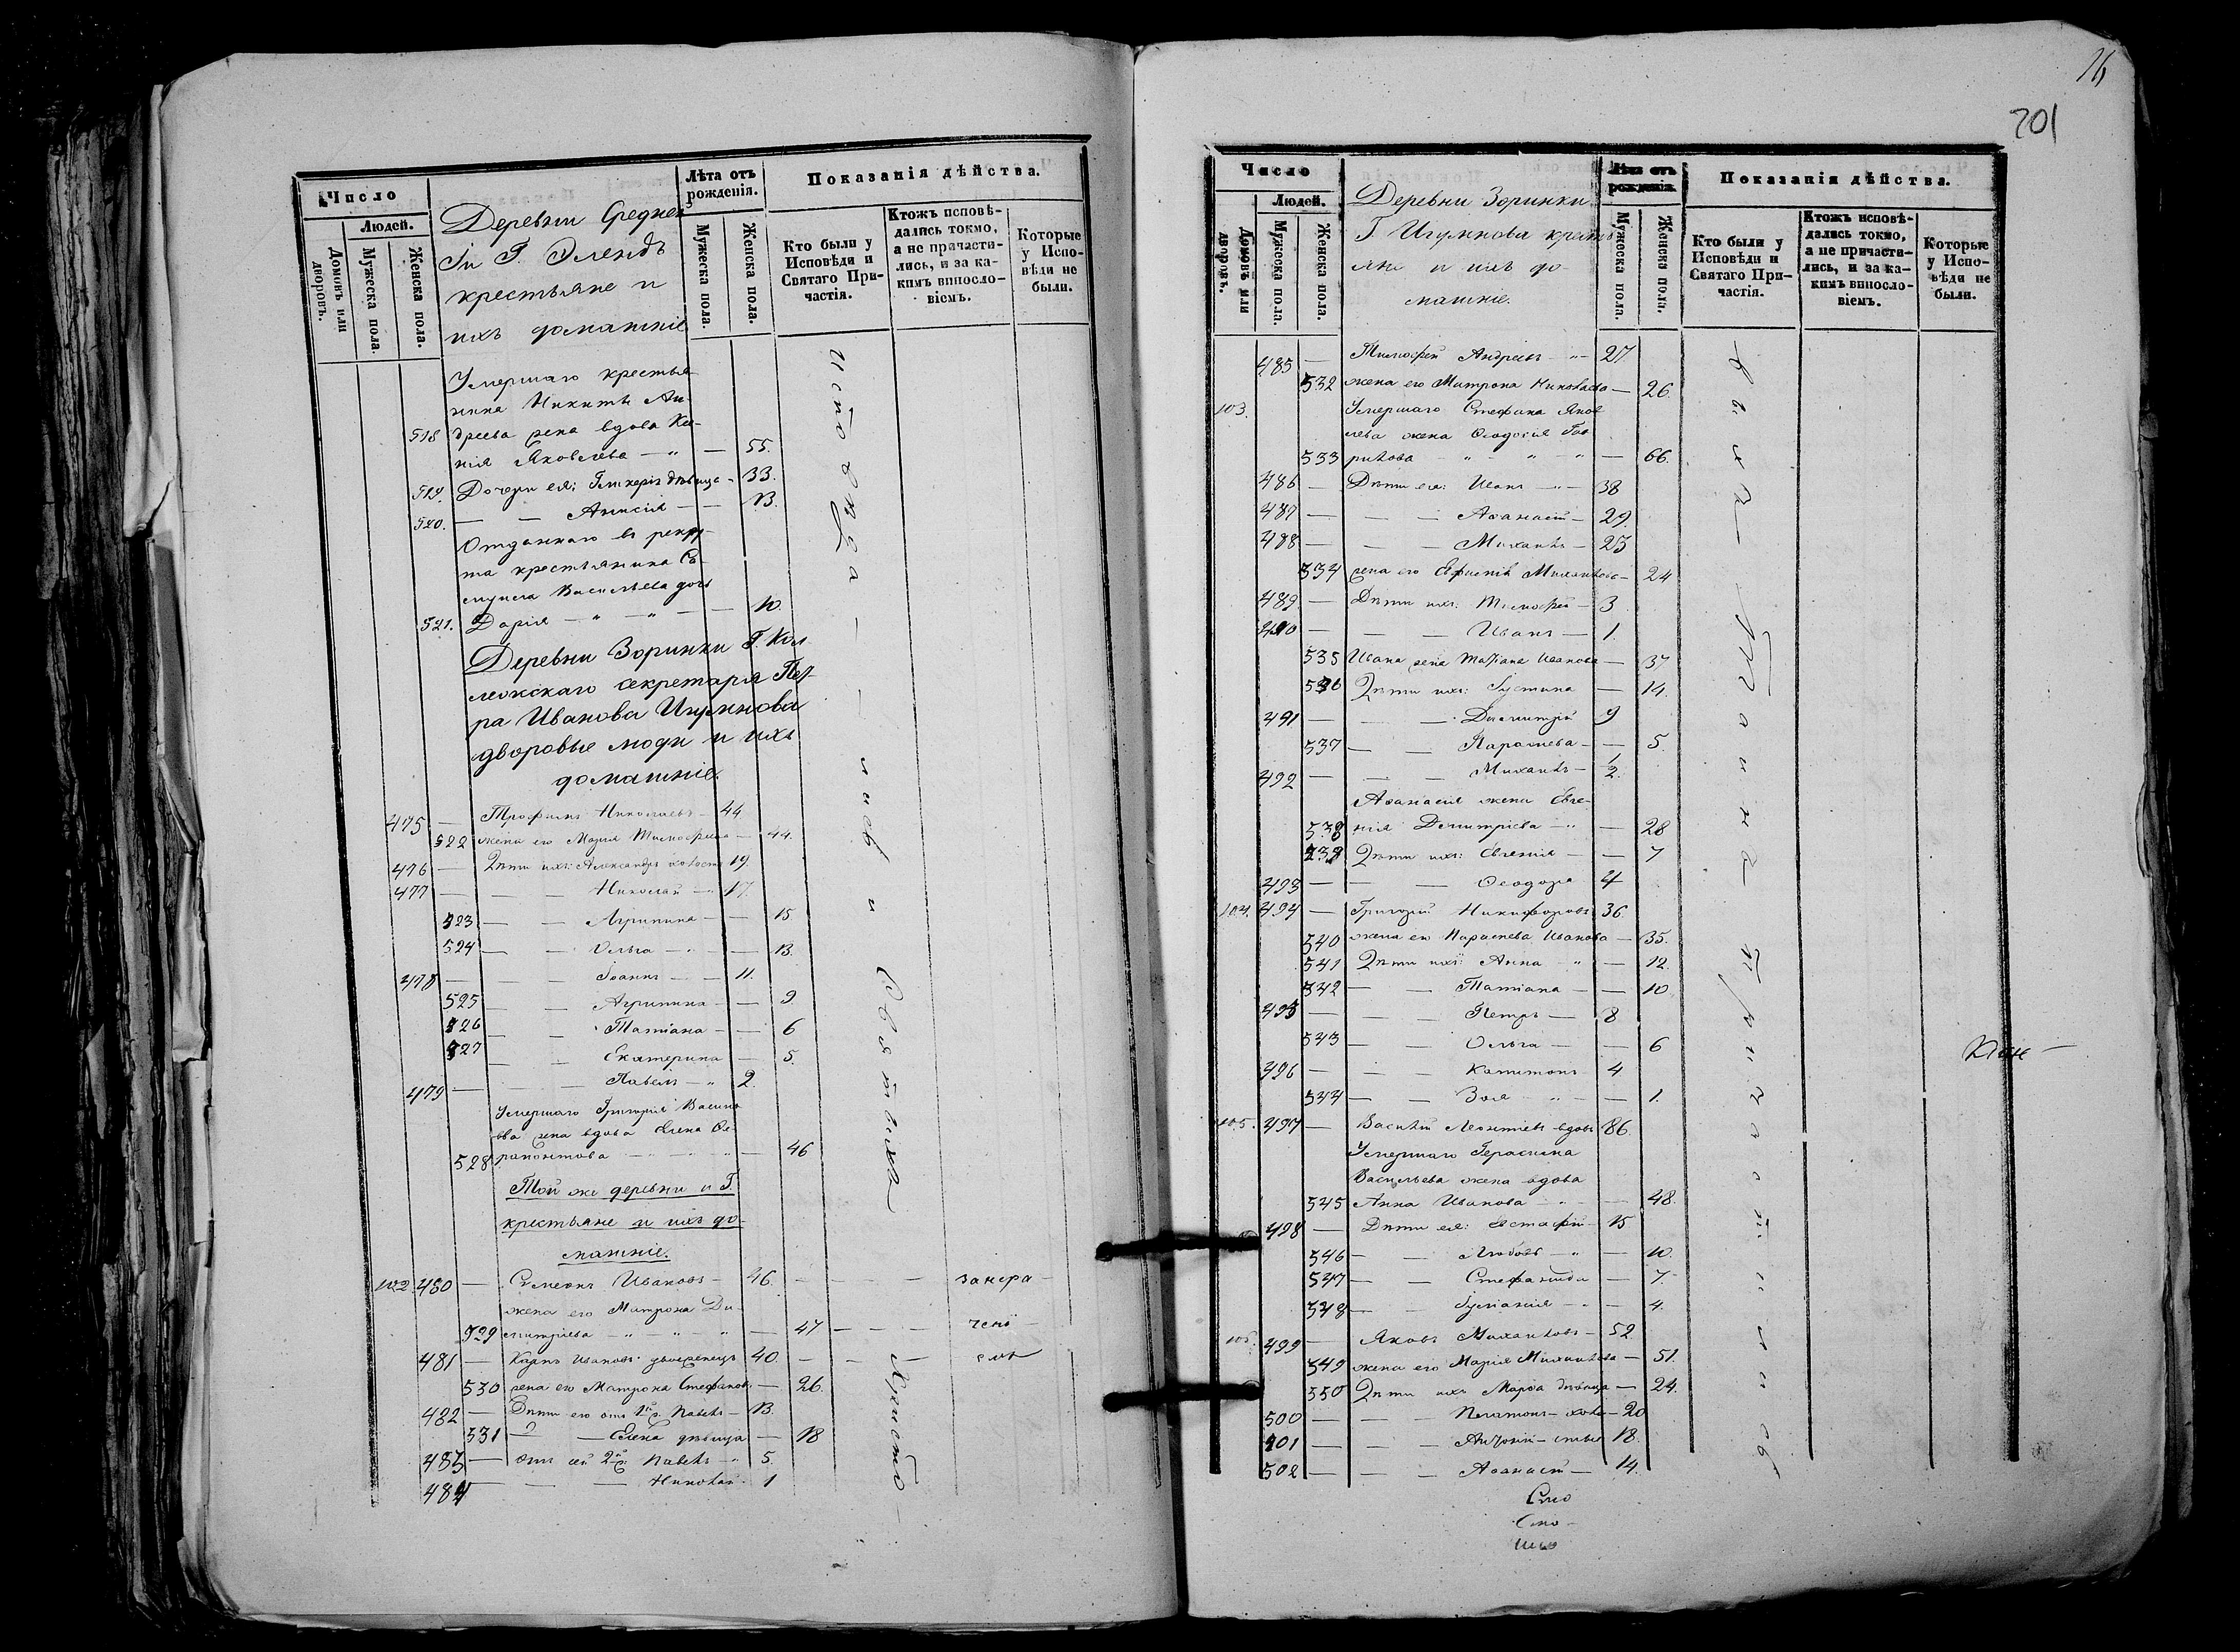 Число
Людей.
Домовъ или дворовъ.
Мужеска пола.
Женска пола.
Деревни Средней
крестьяне и
ихъ домашніе
Лѣта отъ рожденія.
Мужеска пола.
Женска пола.
Показанія дѣйства.
Кто были у Исповѣди и Святаго Причастія.
Ктожъ исповѣдались токмо, а не причастились, и за какимъ винословіемъ.
Которые у Исповѣди не были.
Умершаго крестья-
нина Никиты Ан-
518 дреева жена вдова Ксе-
нія Яковлева — 55.
519. Дочери ея: Гликерія дѣвица - 33.
520. — — Анисія — 13.
Отданнаго въ рекру-
та крестьянина Са-
муила Васильева дочь
521. Дарія — 10.
Деревни Зоринки Г. Кол-
лежскаго секретаря Пет-
ра Иванова Игумнова
дворовые люди и ихъ
домашніе.
475 — Трофимъ Николаевъ — 44
522 жена его Марія Тимофеева — 44.
476 — Дѣти ихъ: Александръ холостъ 19.
477 — — Николай — 17.
523 — — Агрипина — 15
524 — — Ольга — 13.
478 — — Іоаннъ — 11.
525 — Агрипина — 9
526 — — Татіана — 6
527 — — Екатерина — 5.
479 — — Павелъ — 2.
Умершаго Григорія Василь-
ева жена вдова Елена Фе-
528 рапонтова — 46
Той же деревни и Г.
крестьяне и ихъ до-
машніе.
102. 480 — Симеонъ Ивановъ — 46. — — — занера-
жена его Матрона Ди-
529 митріева — 47 — — — чені-
481 — Карпъ Ивановъ двоеженецъ 40. — — — емъ
530 жена его Матрона Стефанов. — 26.
482 — Дѣти его отъ 1й ж. Павелъ — 13.
531 — — Елена дѣвица — 18
483 — отъ сей 2й ж. Павелъ — 5.
484 — — Николай 1
Исповѣда — лись и Святыхъ Христо-
16
201
Число
Людей.
Домовъ или дворовъ.
Мужеска пола.
Женска пола.
Деревни Зоринки
Г. Игумнова кресть-
яне и ихъ до-
машніе.
Лѣта отъ рожденія.
Мужеска пола.
Женска пола.
Показанія дѣйства.
Кто были у Исповѣди и Святаго Причастія.
Ктожъ исповѣдались токмо, а не причастились, и за какимъ винословіемъ.
Которые у Исповѣди не были.
485 — Тимофей Андреевъ — 27
532 жена его Матрона Николаева — 26.
103. Умершаго Стефана Яков-
лева жена Ѳеодосія Гав-
533 рилова — 66.
486 — Дѣти ея: Иванъ — 38
487 — — Аѳанасій — 29.
488 — — Михаилъ — 23
534 жена его Евфимія Михаилова — 24
489 — Дѣти ихъ: Тимофей — 3
490 — — Иванъ — 1.
535 Ивана жена Татіана Иванова — 37
536 Дѣти ихъ: Іустина — 14.
491 — — Димитрій 9
537 — — Параскева — 5.
492 — — Михаилъ — 1/2.
Аѳанасія жена Евге-
538 нія Димитріева — 28
539 Дѣти ихъ: Евгенія — 7
493 — — Ѳеодоръ 4
104. 494 — Григорій Никифоровъ 36.
540 жена его Параскева Иванова — 35.
541 Дѣти ихъ: Анна — 12.
542 — — Татіана — 10.
495 — — Петръ — 8
543 — — Ольга — 6
496 — — Капитонъ 4
544 — — Зоя — 1.
105. 497 — Василій Леонтіевъ вдовъ 86.
Умершаго Герасима
Васильева жена вдова
545 Анна Иванова — 48.
498 — Дѣти ея: Евстафій 15
546 — — Любовь — 10.
547 — — Стефанида — 7.
548 — — Іуліанія — 4.
106. 499 — Яковъ Михаиловъ — 52
549 жена его Марія Михаилова — 51.
550 Дѣти ихъ Марѳа дѣвица — 24.
500 — — Платонъ — холо — 20
501 — — Антоній — стые 18.
502 — — Аѳанасій — 14.
выхъ — Таинъ — пріобщились